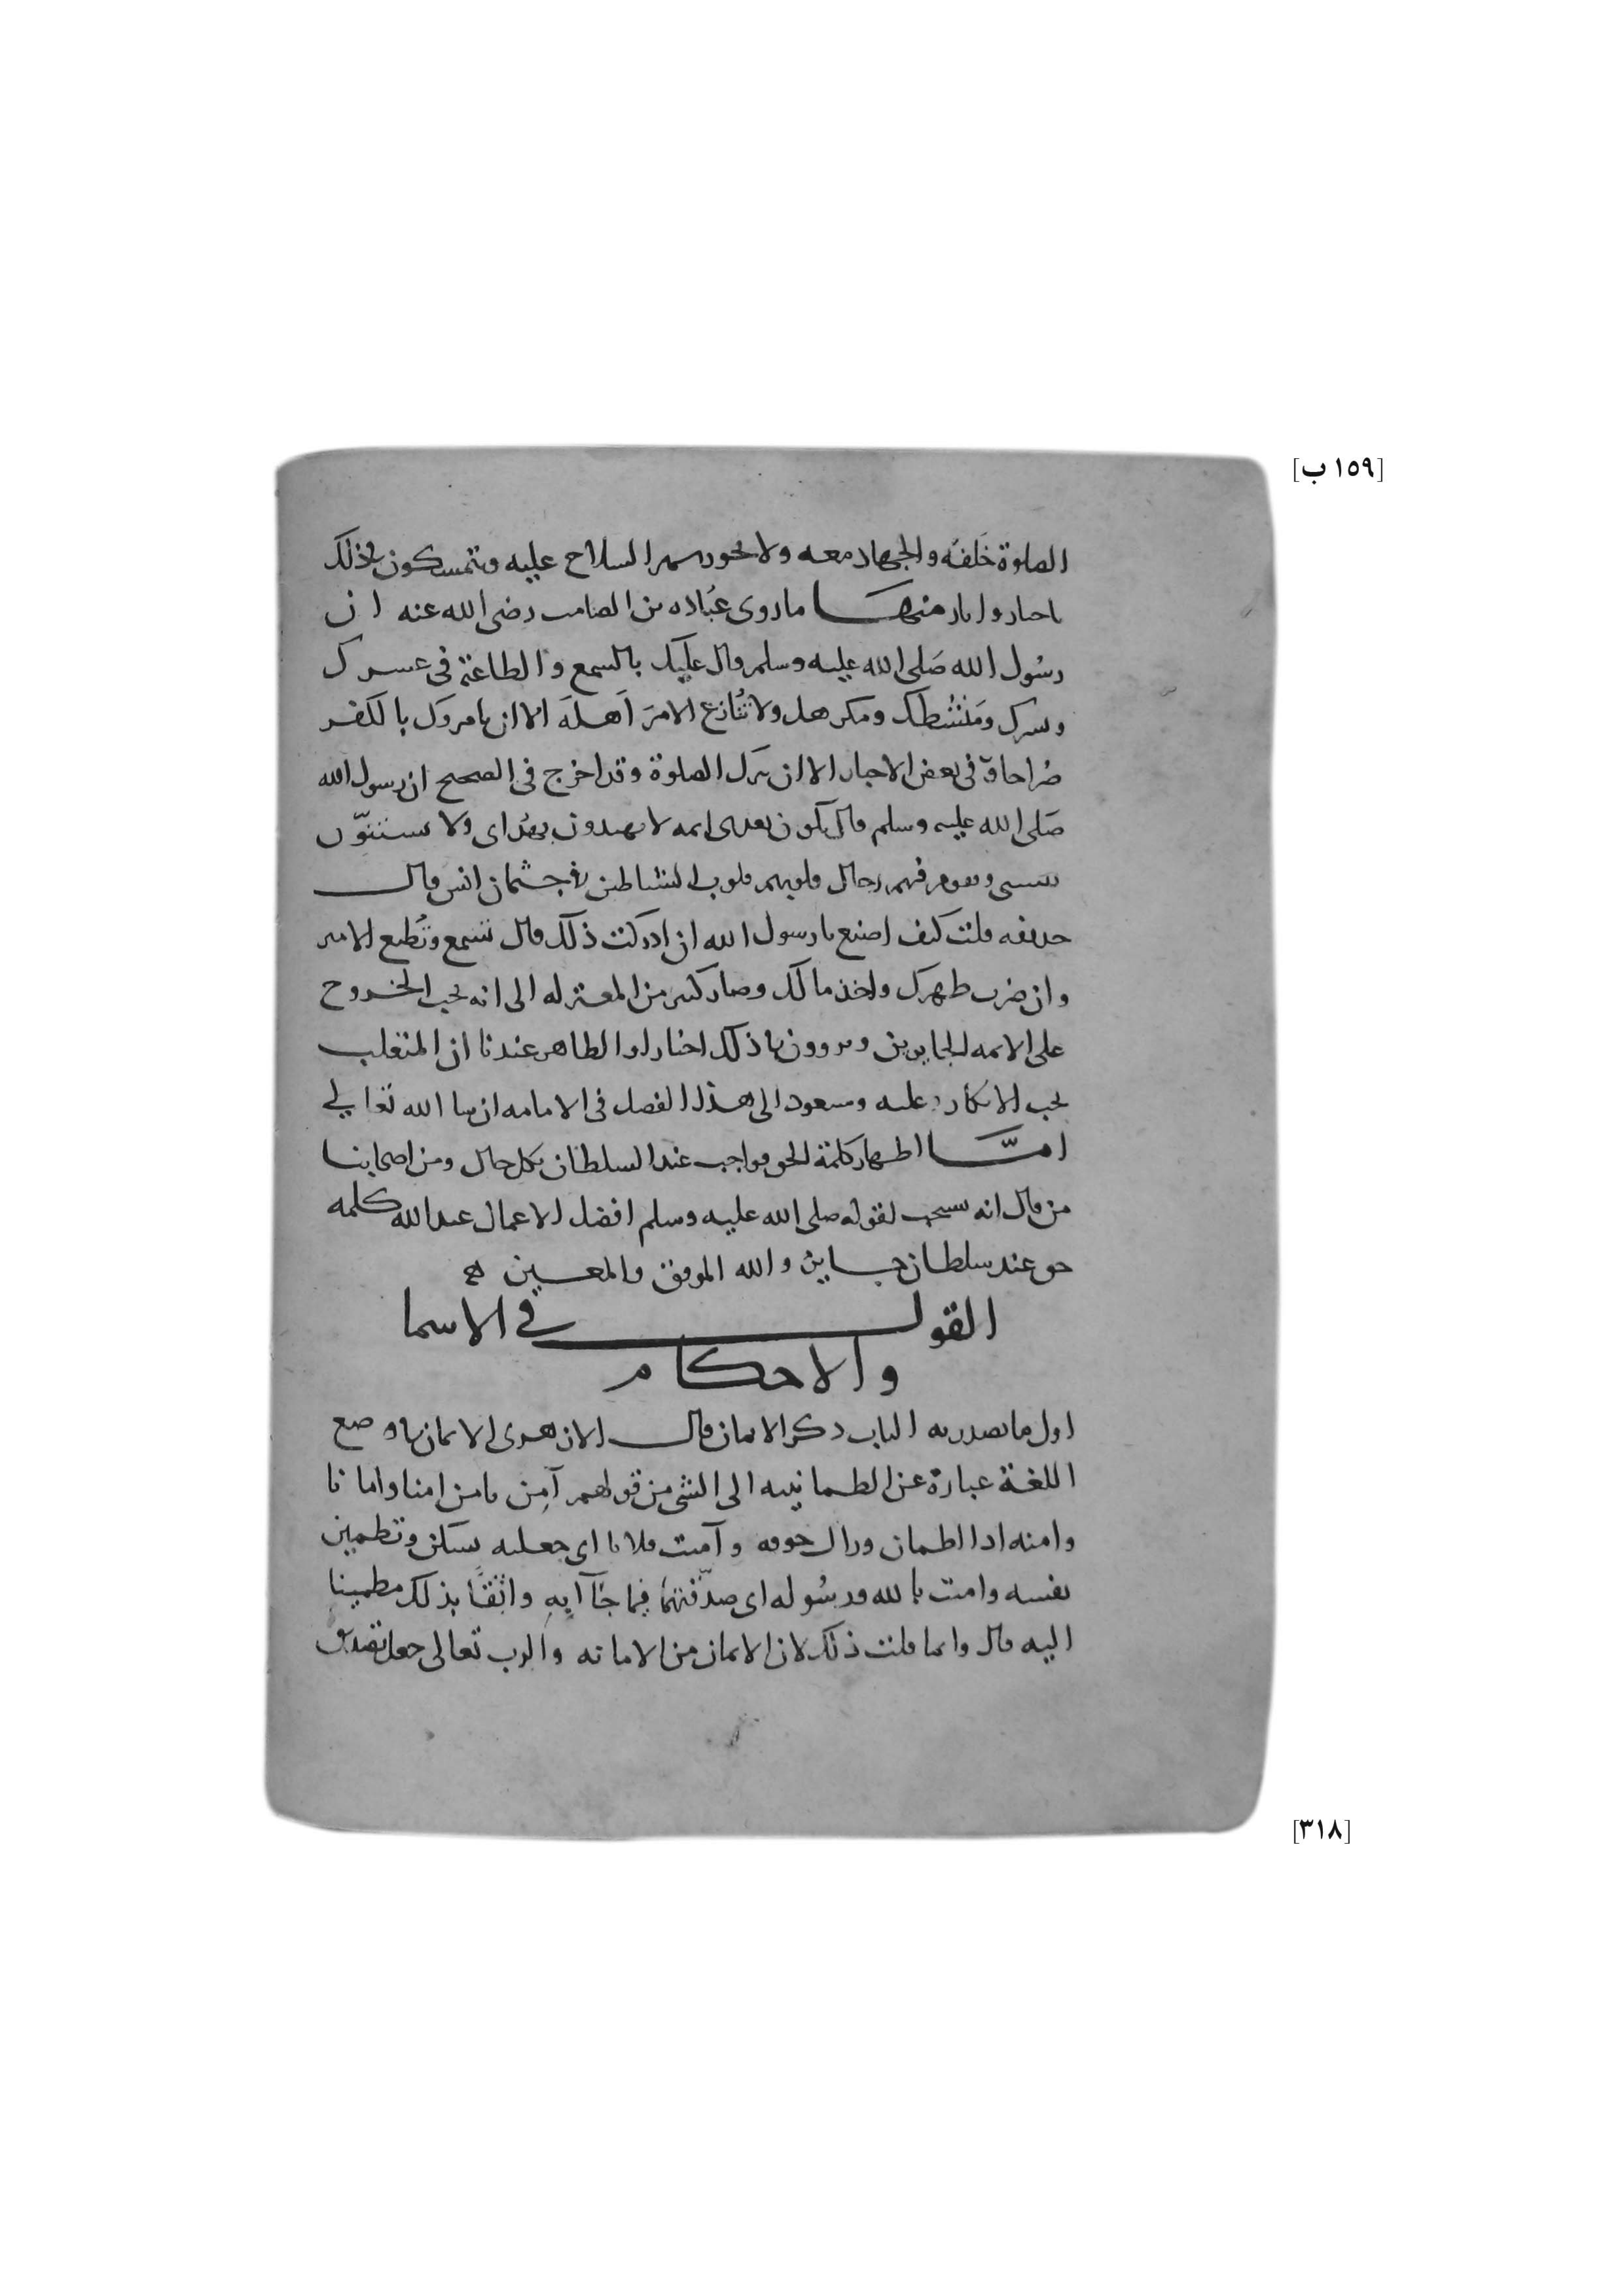 [١٥٩ ب]
الصلوة خَلفَه والجهاد معه ولا يجوز شهر السلاح عليه ويتمسكون في ذلك
باخبار واثار منها ما روى عُبادة بن الصامت رضى الله عنه ان
رسُول الله صَلى الله عليه وسلم قال عليك بالسمع والطاعة فى عسرك
ويسرك ومَنْشَطك ومكرهك ولا تُنازع الامرَ اَهلَه الا ان يامروك بالكفر
صُراحا وفى بعض الاخبار الا ان يترك الصلوة وقد اخرج فى الصحيح ان رسول الله
صَلى الله عليه وسلم قال يكون بعدى ايمه لا يهدون بهُداى ولا يستنّون
بسنتى وسيقوم فيهم رجال قلوبهم قلوب الشياطين في جثمان انس قال
حذيفه قلت كيف اصنع يا رسول الله ان ادركت ذلك قال تسمع وتُطيع الامير
وان ضرب ظهرك واخذ مالك وصار كثير من المعتزله الى انه يجب الخروج
على الايمه الجايرين ويروون في ذلك اخبارا والظاهر عندنا ان المتغلب
يجب الانكار عليه وسنعود الى هذا الفصل فى الامامه ان شا الله تعالي
امَّا اظهار كلمة الحق فواجب عند السلطان بكل حال ومن اصحابنا
من قال انه يستحب لقوله صلى الله عليه وسلم افضل الاعمال عند الله كلمه
حق عند سلطان جاير والله الموفق والمعين
القول في الاسما
والاحكام
اول ما نصدر به الباب ذكر الايمان قال الازهرى الايمان في وضع
اللغة عبارة عن الطمانينه الى الشى من قولهم آمِن يامن امنا وامانا
وامنه اذا اطمان وزال خوفه وآمنت فلانا اى جعلته يسكن وتطمين
نفسه وامنت بالله ورسُوله اى صدّقتهما فيما جَآ آبِهِ واثقًا بذلك مطمينا
اليه قال وانما قلت ذلك لان الايمان من الامانه والرب تعالى جعل تصديق
[٣١٨]